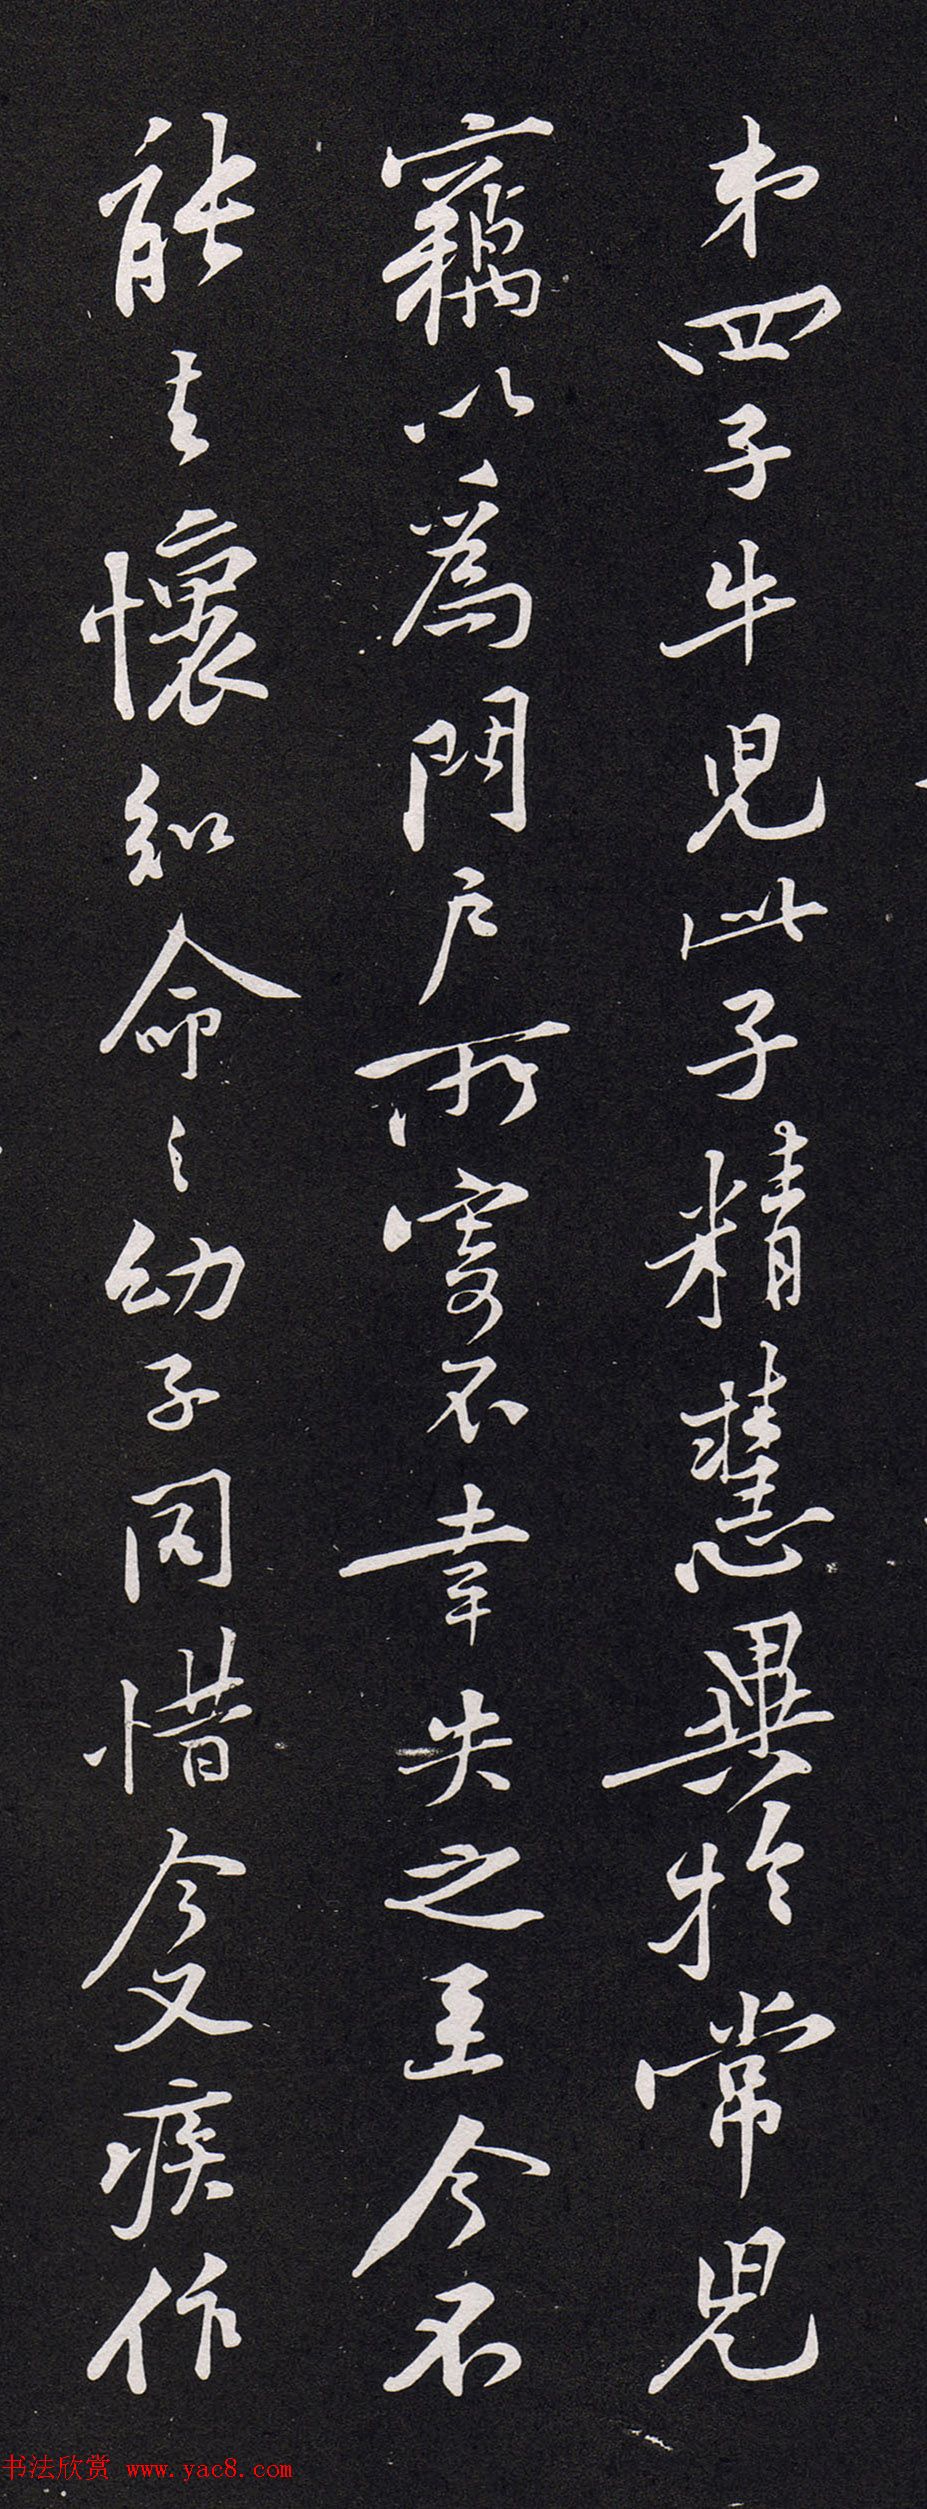 弟四子牛兒此子精慧異於常兒
竊以爲門戶所寄不幸失之至今不
能去懷知命之幼子同惜今又疾作
书法欣赏 www.yac8.com